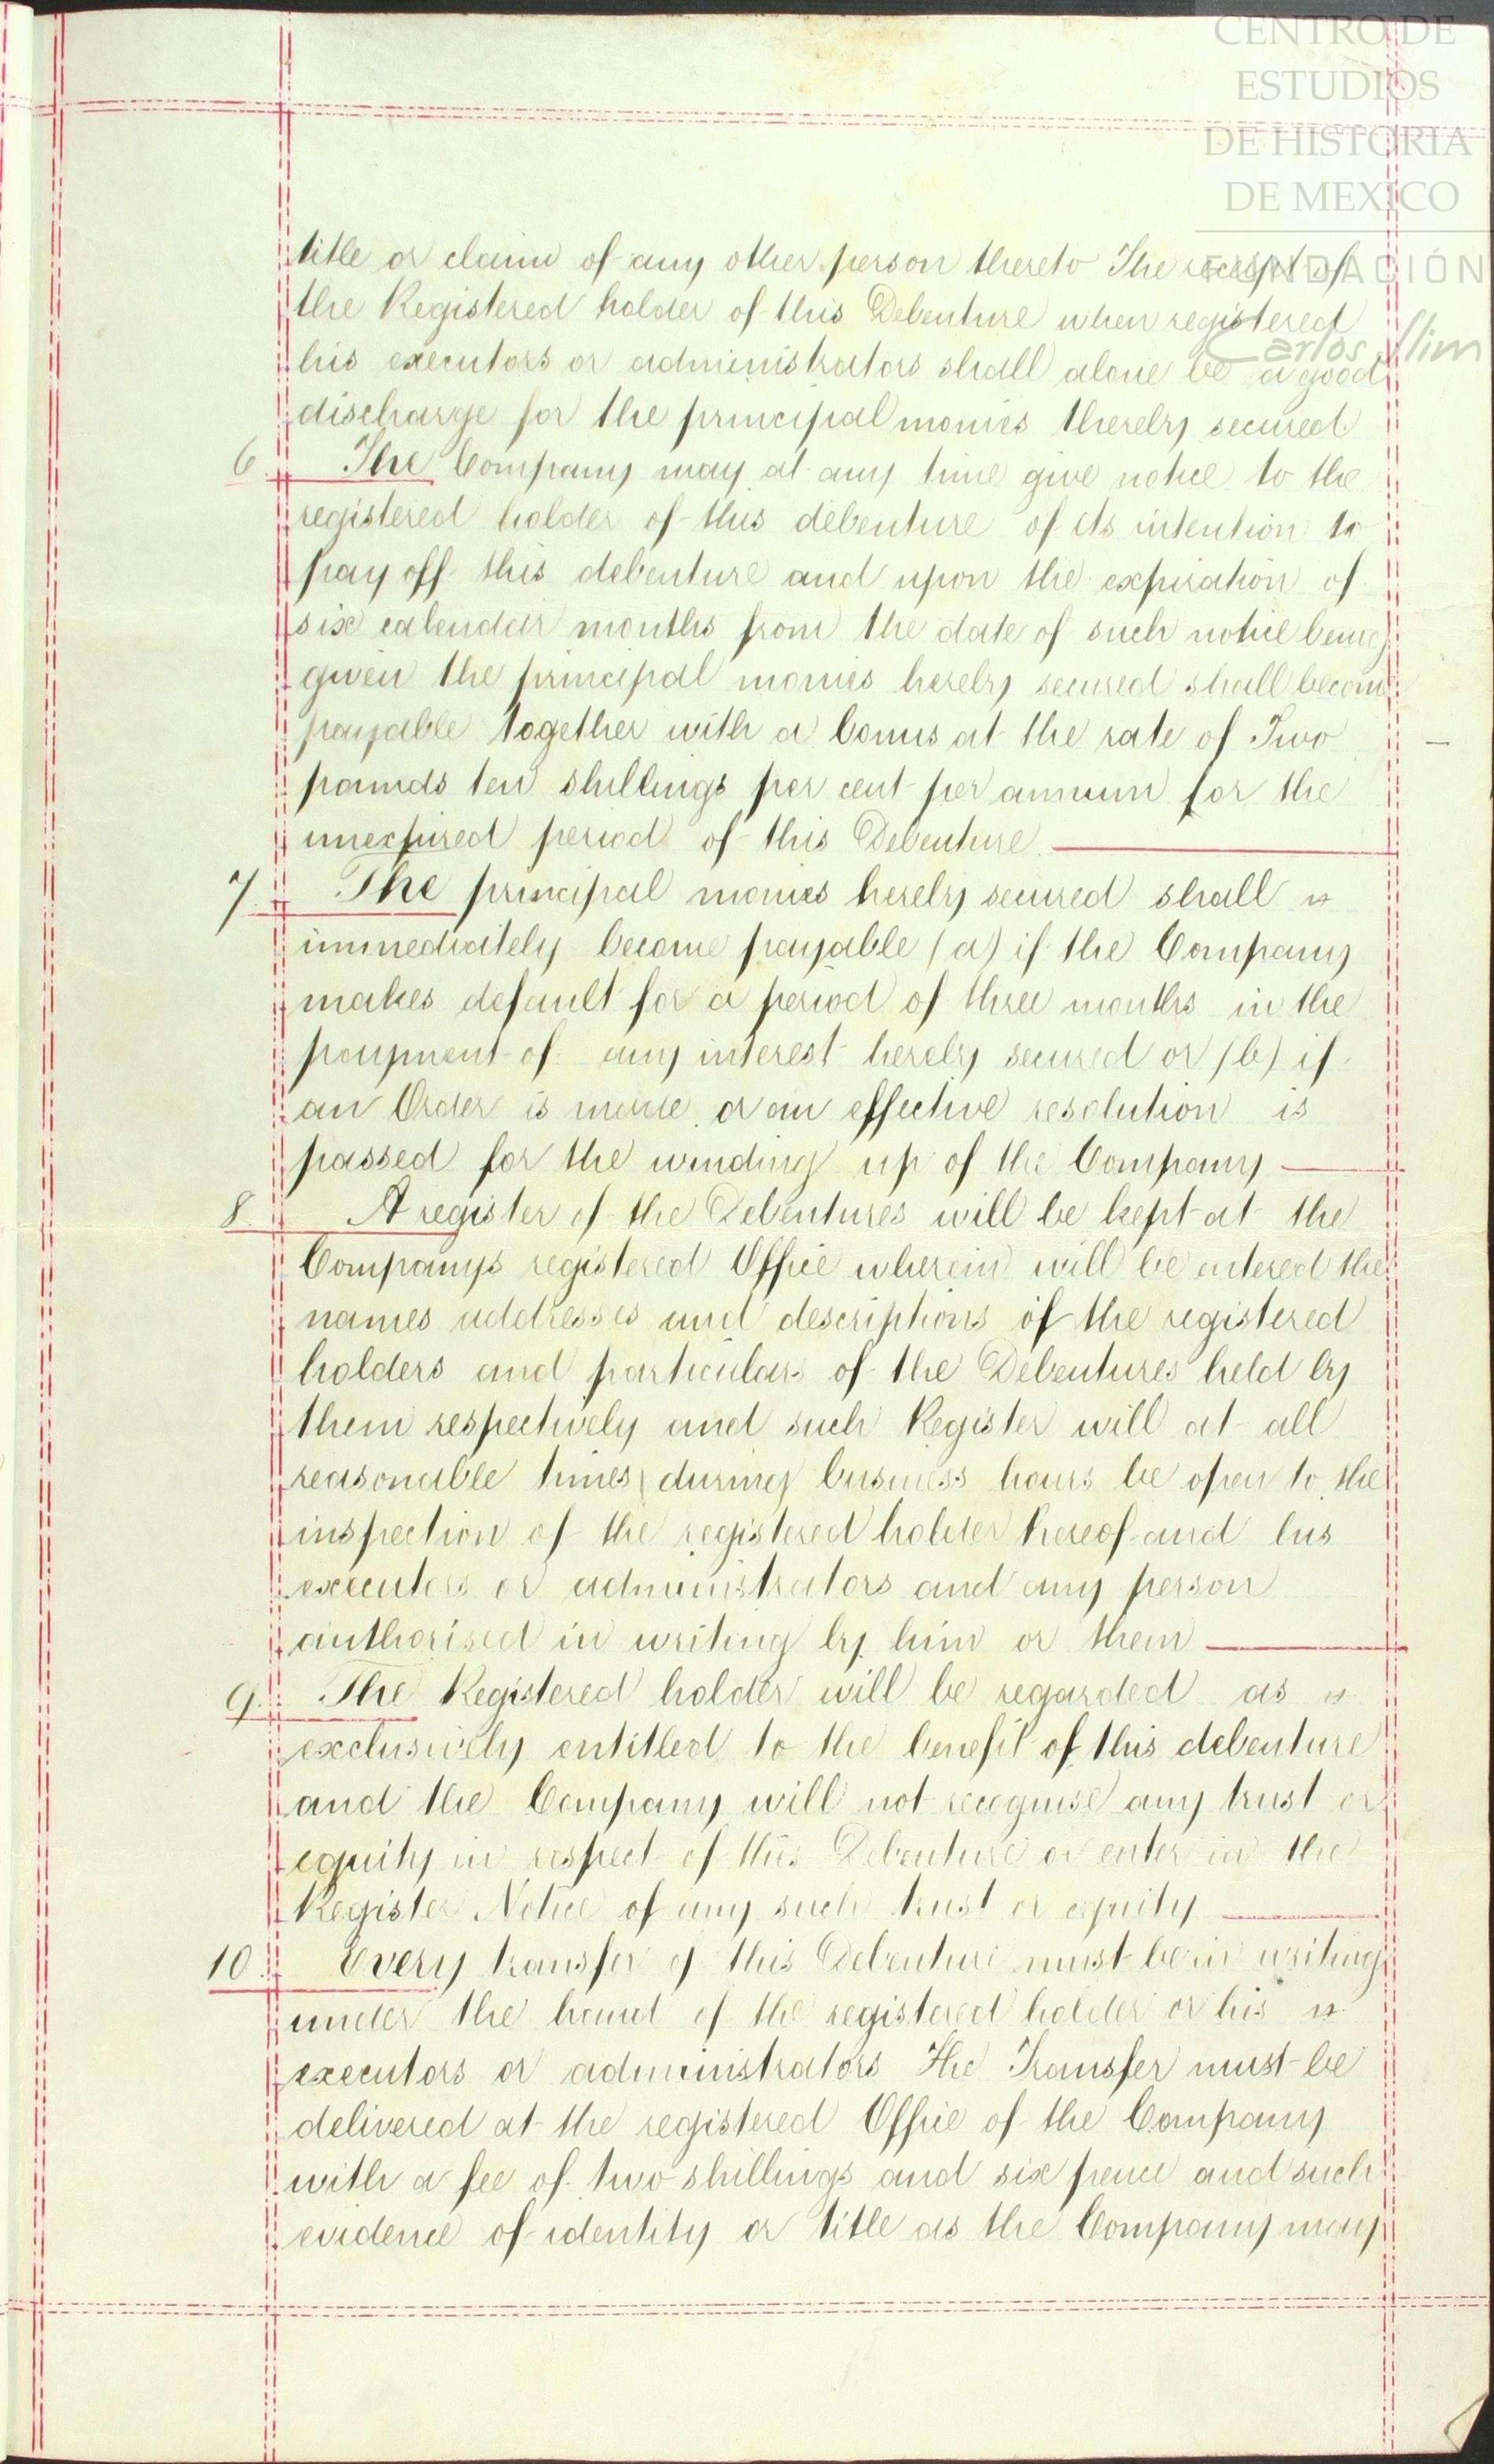 CENTRO DE
ESTUDIOS
DE HISTORIA
DE MEXICO
FUNDACIÓN
Carlos Slim
title or claim of any other person thereto The receipt of
the Registered holder of this Debenture when registered
his executors or administrators shall alone be a good
discharge for the principal monies thereby secured
6. The Company may at any time give notice to the
registered holder of this debenture of its intention to
pay off this debenture and upon the expiration of
six calendar months from the date of such notice being
given the principal monies hereby secured shall become
payable together with a bonus at the rate of Two
pounds ten shillings per cent per annum for the
unexpired period of this Debenture
7. The principal monies hereby secured shall
immediately become payable (a) if the Company
makes default for a period of three months in the
payment of any interest hereby secured or (b) if
an Order is made or an effective resolution is
passed for the winding up of the Company
8. A register of the Debentures will be kept at the
Companys registered Office wherein will be entered the
names addresses and descriptions of the registered
holders and particulars of the Debentures held by
them respectively and such Register will at all
reasonable times during business hours be open to the
inspection of the registered holder hereof and his
executors or administrators and any person
authorised in writing by him or them
9. The Registered holder will be regarded as
exclusively entitled to the benefit of this debenture
and the Company will not recognise any trust or
equity in respect of this Debenture or enter in the
Register Notice of any such trust or equity
10. Every transfer of this Debenture must be in writing
under the hand of the registered holder or his
executors or administrators The Transfer must be
delivered at the registered Office of the Company
with a fee of two shillings and six pence and such
evidence of identity or title as the Company may